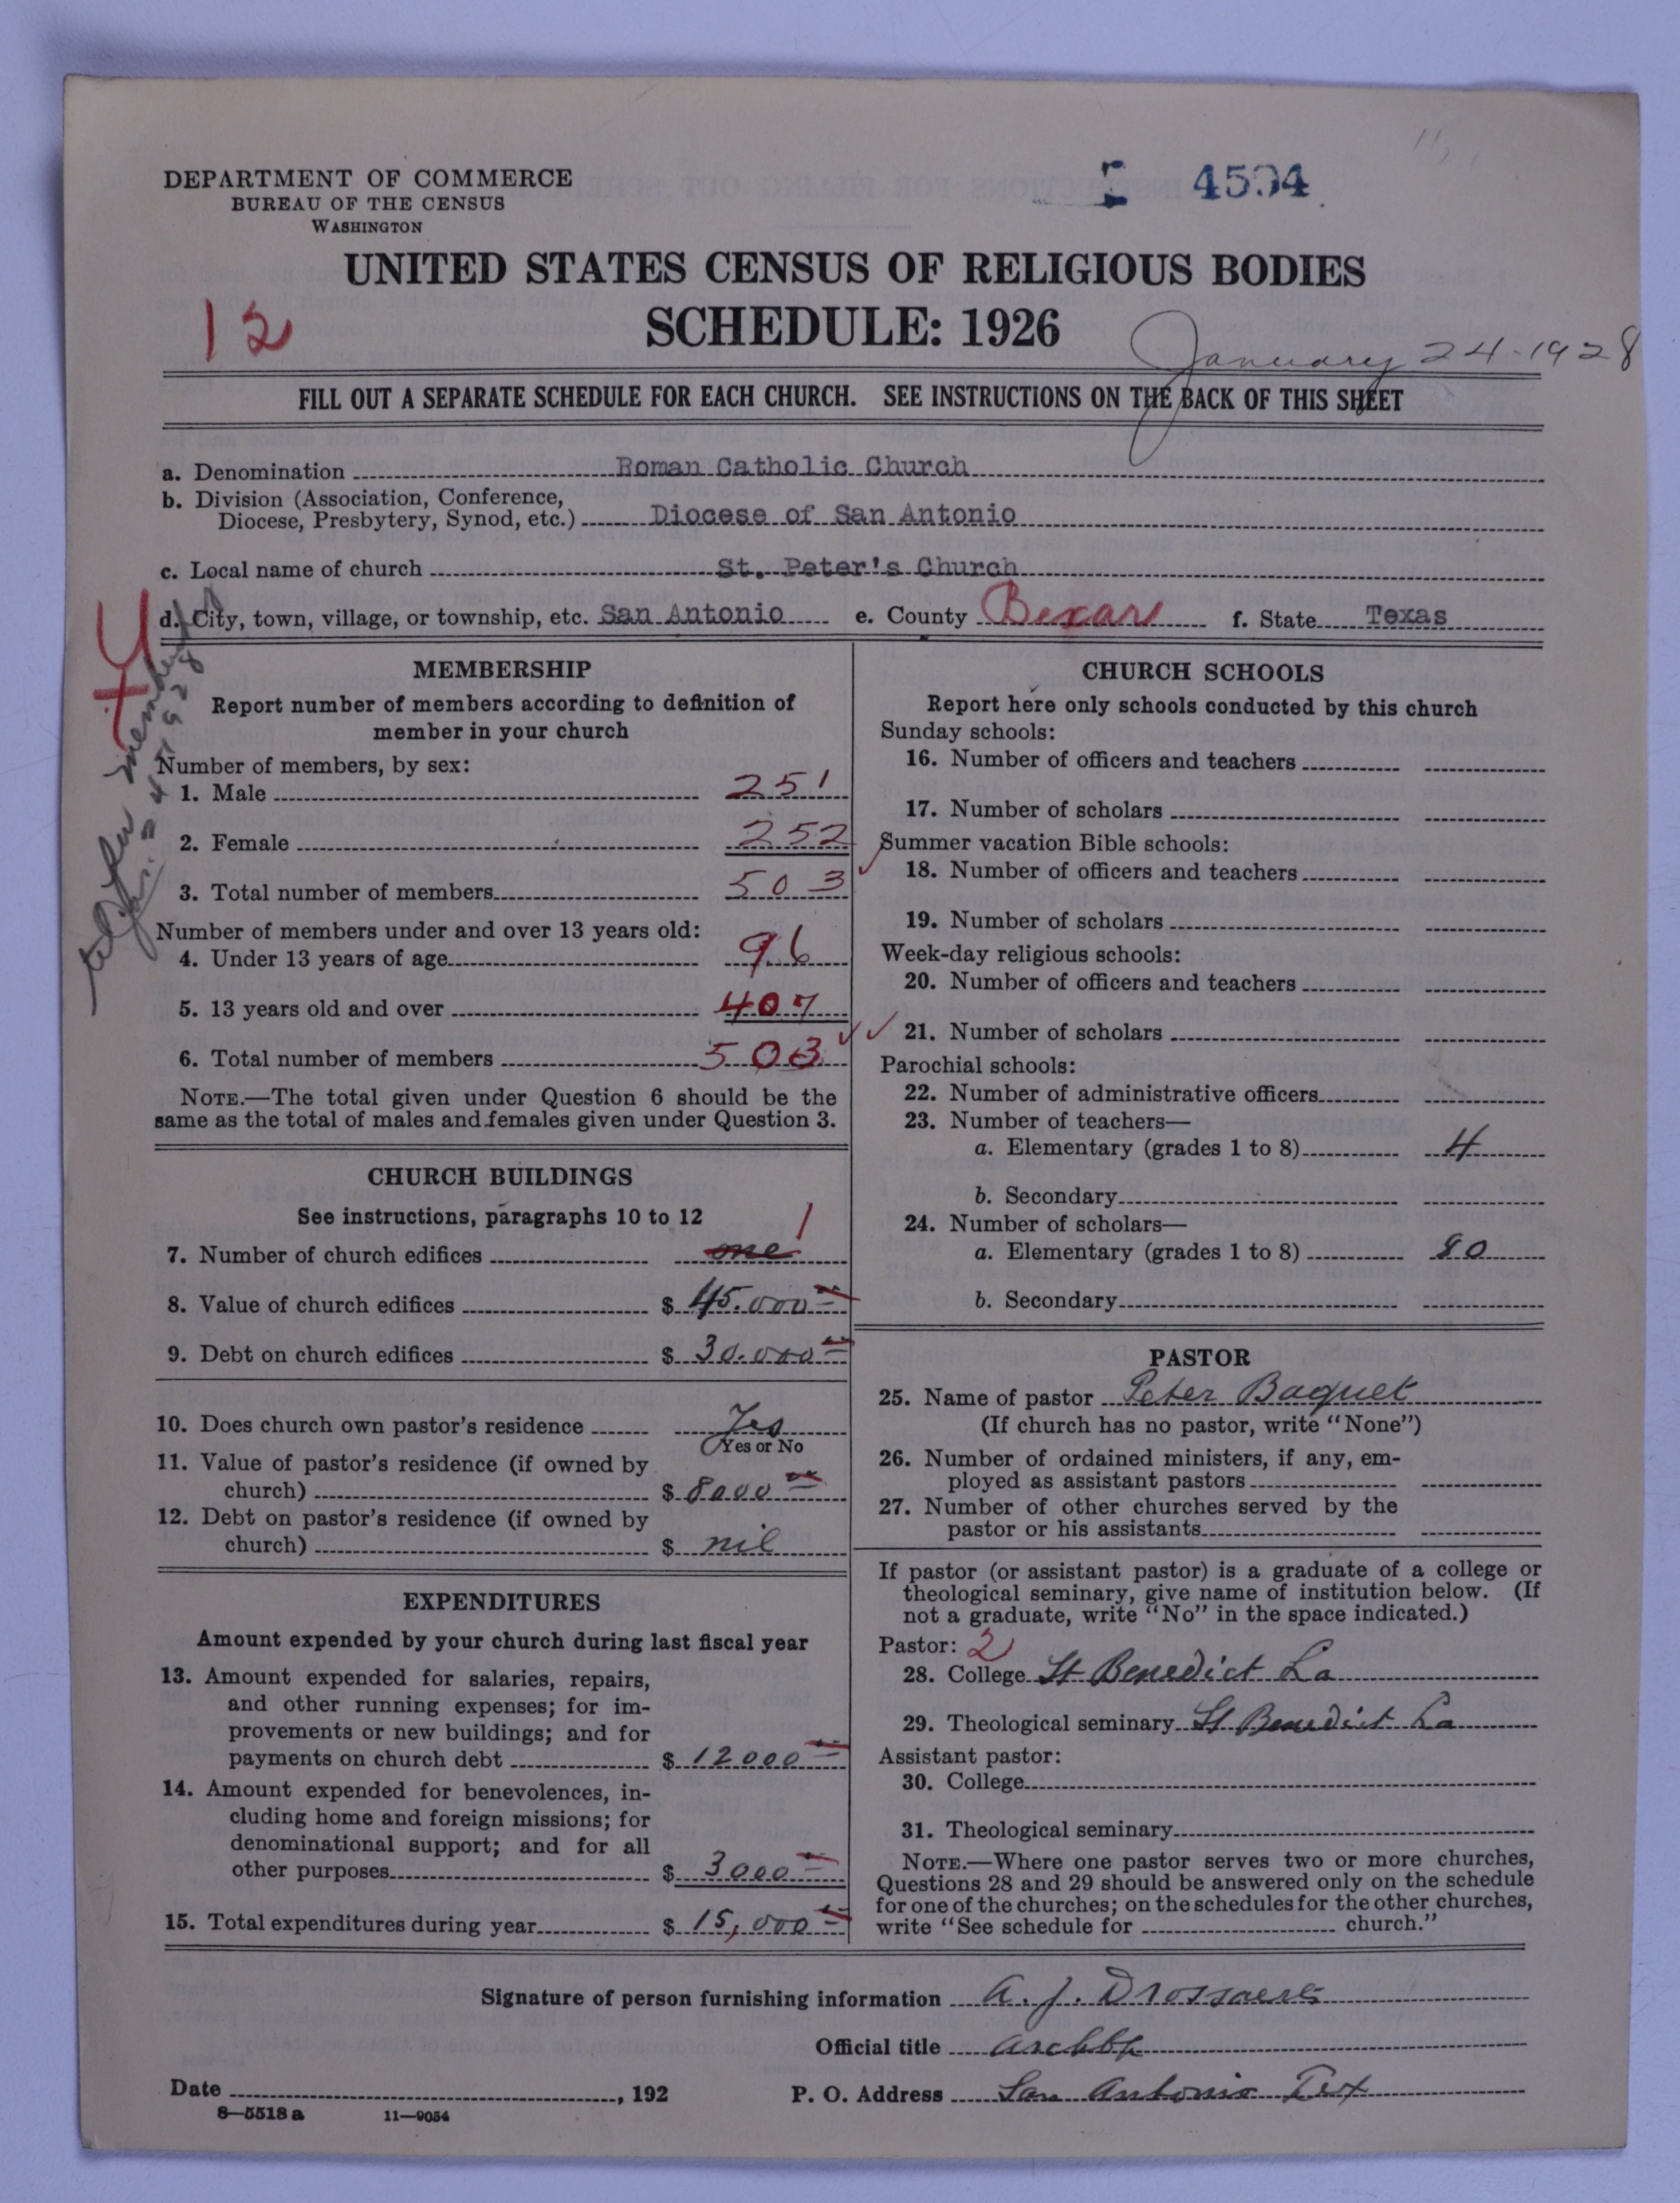 DEPARTMENT OF COMMERCE
BUREAU OF THE CENSUS
WASHINGTON
4594
UNITED STATES CENSUS OF RELIGIOUS BODIES
SCHEDULE: 1926
12
January 24-1928
FILL OUT A SEPARATE SCHEDULE FOR EACH CHURCH. SEE INSTRUCTIONS ON THE BACK OF THIS SHEET
a. Denomination Roman Catholic Church
b. Division (Association, Conference,
Diocese, Presbytery, Synod, etc.) Diocese of San Antonio
c. Local name of church St. Peter's Church
d. City, town, village, or township, etc. San Antonio e. County Bexar f. State Texas
MEMBERSHIP
Report number of members according to definition of
member in your church
Number of members, by sex:
1. Male 251
2. Female 252
3. Total number of members 503
Number of members under and over 13 years old:
4. Under 13 years of age 96
5. 13 years old and over 407
6. Total number of members 503
NOTE.—The total given under Question 6 should be the
same as the total of males and females given under Question 3.
CHURCH BUILDINGS
See instructions, paragraphs 10 to 12
7. Number of church edifices one 1
8. Value of church edifices $ 45.000
9. Debt on church edifices $ 30.000
10. Does church own pastor's residence Yes
Yes or No
11. Value of pastor's residence (if owned by
church) $ 8000
12. Debt on pastor's residence (if owned by
church) $ nil
EXPENDITURES
Amount expended by your church during last fiscal year
13. Amount expended for salaries, repairs,
and other running expenses; for im-
provements or new buildings; and for
payments on church debt $ 12000
14. Amount expended for benevolences, in-
cluding home and foreign missions; for
denominational support; and for all
other purposes $ 3000
15. Total expenditures during year $ 15,000
CHURCH SCHOOLS
Report here only schools conducted by this church
Sunday schools:
16. Number of officers and teachers
17. Number of scholars
Summer vacation Bible schools:
18. Number of officers and teachers
19. Number of scholars
Week-day religious schools:
20. Number of officers and teachers
21. Number of scholars
Parochial schools:
22. Number of administrative officers
23. Number of teachers—
a. Elementary (grades 1 to 8) 4
b. Secondary
24. Number of scholars—
a. Elementary (grades 1 to 8) 80
b. Secondary
PASTOR
25. Name of pastor Peter Baquet
(If church has no pastor, write "None")
26. Number of ordained ministers, if any, em-
ployed as assistant pastors
27. Number of other churches served by the
pastor or his assistants
If pastor (or assistant pastor) is a graduate of a college or
theological seminary, give name of institution below. (If
not a graduate, write "No" in the space indicated.)
Pastor: 2
28. College St Benedict La
29. Theological seminary St Benedict La
Assistant pastor:
30. College
31. Theological seminary
NOTE.—Where one pastor serves two or more churches,
Questions 28 and 29 should be answered only on the schedule
for one of the churches; on the schedules for the other churches,
write "See schedule for church."
Signature of person furnishing information A. J. Drossaerts
Official title Archbp
Date , 192 P. O. Address San Antonio Tex
8—5518 a 11—9054